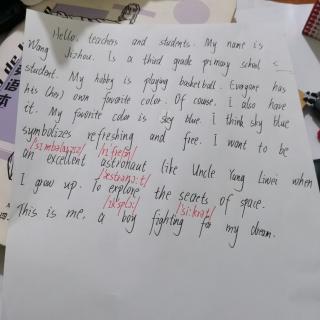 Hello. teachers and students. My name is
Wang Jizhou. Is a third grade primary school
student. My hobby is playing basketball. Everyone has
his (her) own favorite color. Of course, I also have
it. My favorite color is sky blue. I think sky blue
symbolizes refreshing and free. I want to be
/ˈsɪmbəlaɪzɪz/ /rɪˈfreʃɪŋ/
an excellent astronaut like Uncle Yang Liwei when
/ˈæstrənɔːt/
I grow up. To explore the secrets of space.
/ɪkˈsplɔː/ /ˈsiːkrət/
This is me, a boy fighting for my dream.